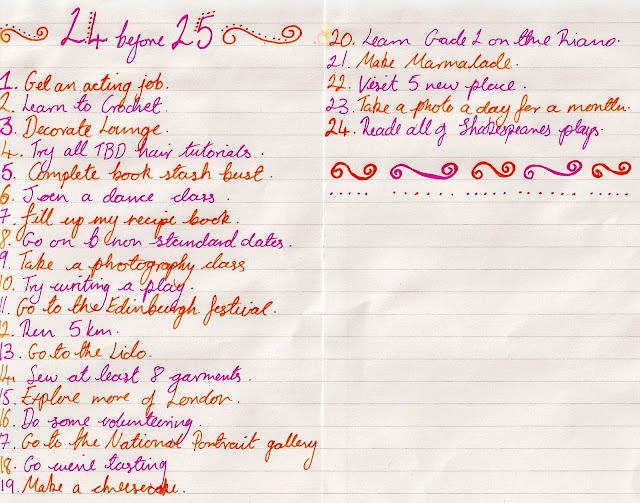 24 before 25
1. Get an acting job.
2. Learn to Crochet.
3. Decorate Lounge.
4. Try all TBD hair tutorials.
5. Complete book stash bust.
6. Join a dance class.
7. Fill up my recipe book.
8. Go on 6 non standard dates.
9. Take a photography class
10. Try writing a play.
11. Go to the Edinburgh festival.
12. Run 5 km.
13. Go to the Lido.
14. Sew at least 8 garments.
15. Explore more of London.
16. Do some volunteering.
17. Go to the National Portrait gallery
18. Go wine tasting
19. Make a cheesecake.
20. Learn Grade 2 on the Piano.
21. Make Marmalade.
22. Visit 5 new place.
23. Take a photo a day for a month.
24. Read all of Shakespeares plays.